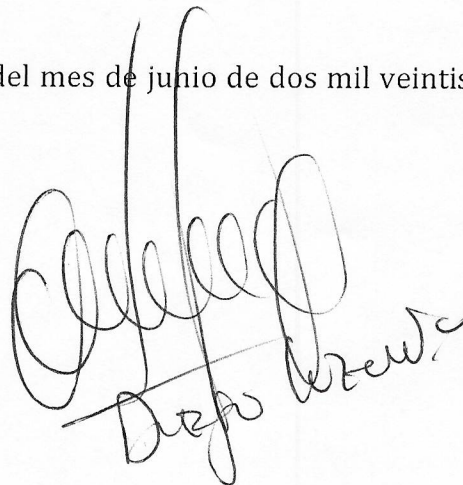 del mes de junio de dos mil veintis
Diego